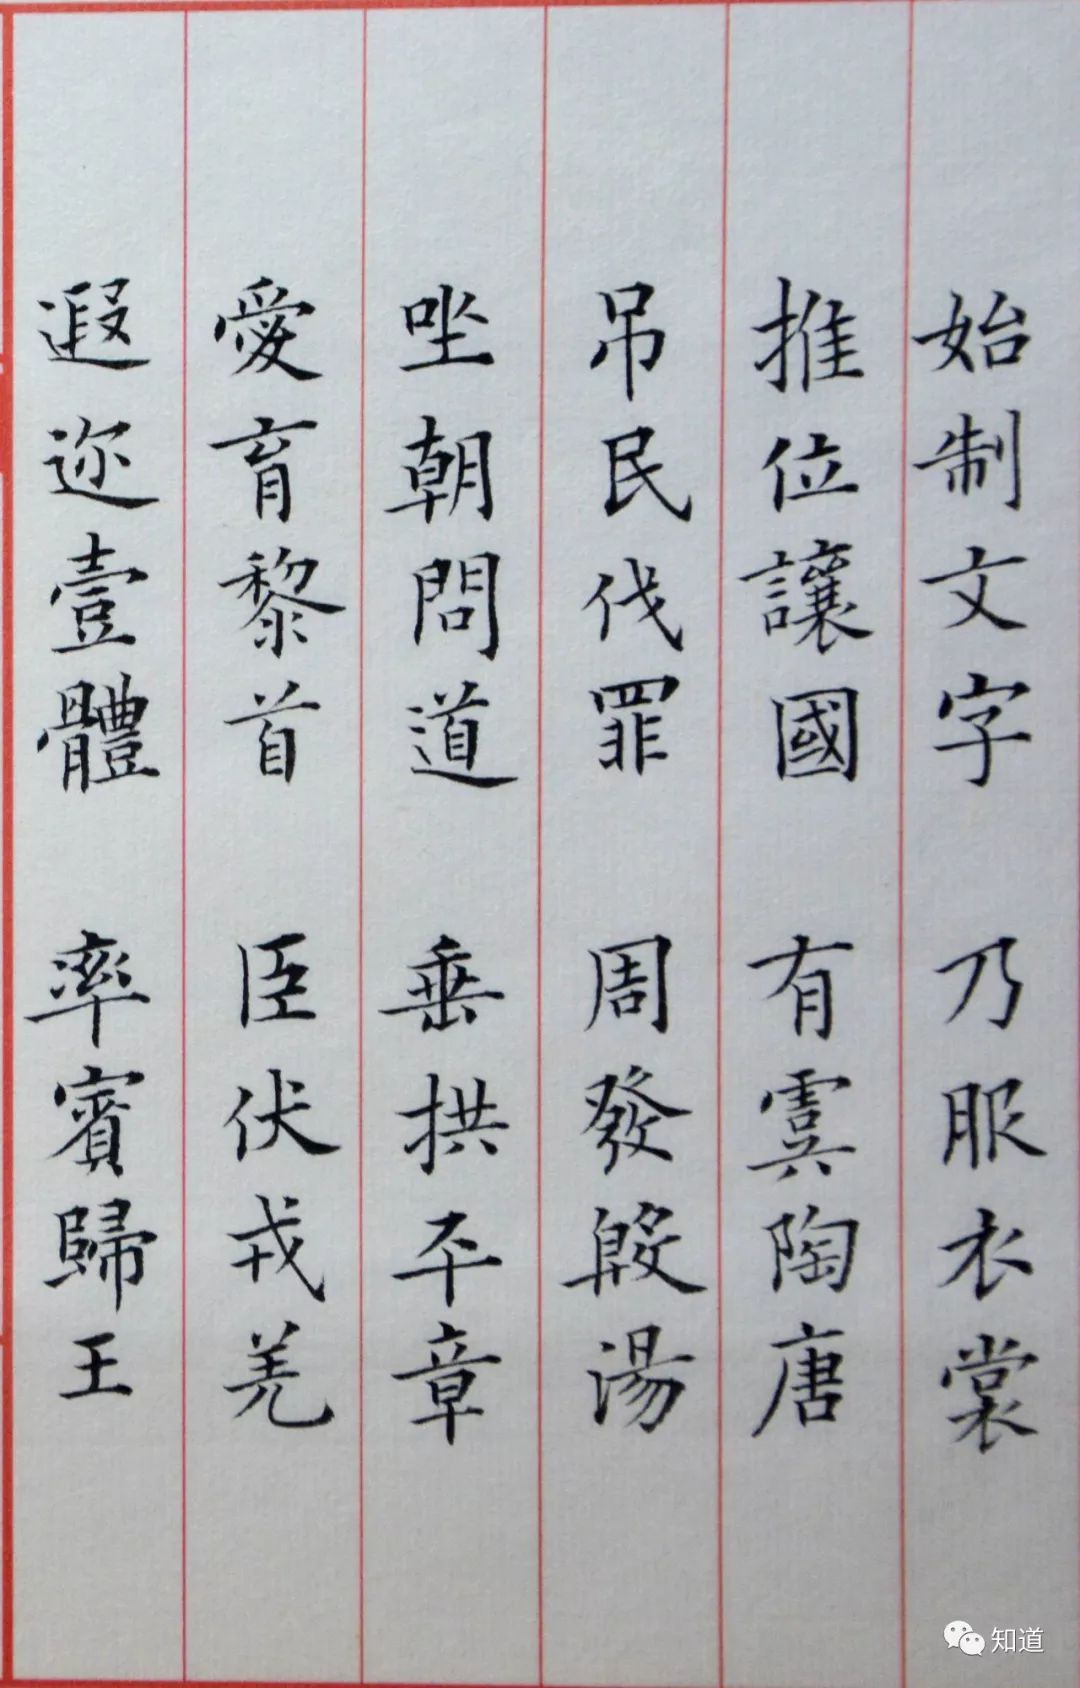 始制文字 乃服衣裳
推位讓國 有虞陶唐
吊民伐罪 周發殷湯
坐朝問道 垂拱平章
愛育黎首 臣伏戎羌
遐迩壹體 率賓歸王
知道